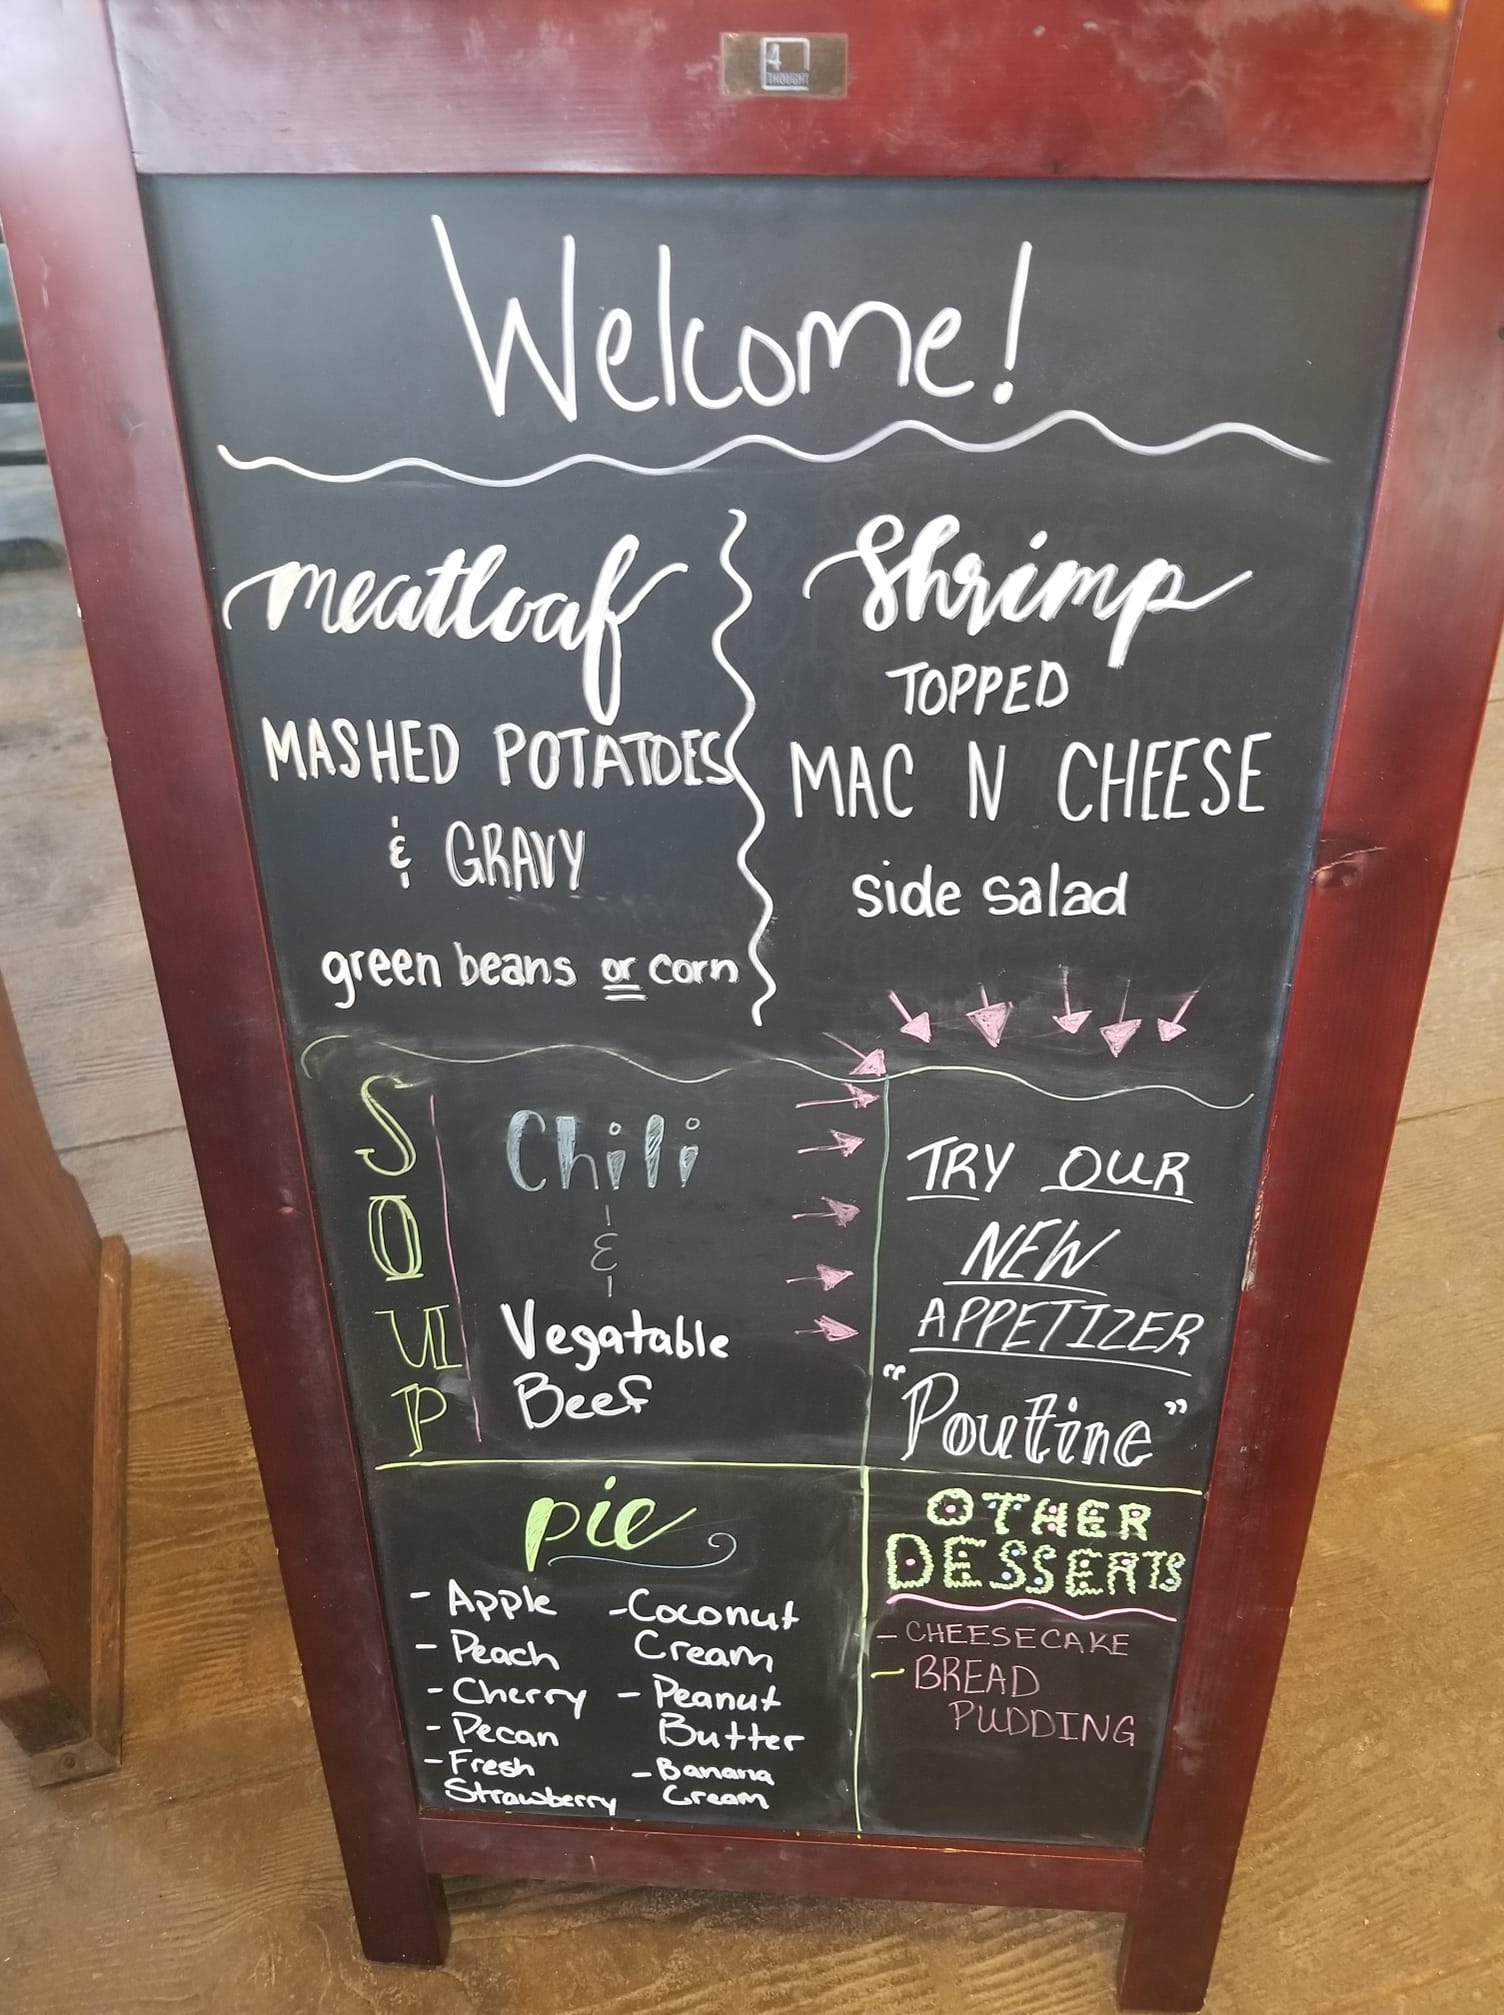 4
THOUGHT
Welcome!
meatloaf
MASHED POTATOES
& GRAVY
green beans or corn
Shrimp
TOPPED
MAC N CHEESE
side salad
SOUP
Chili
&
Vegatable
Beef
TRY OUR
NEW
APPETIZER
"Poutine"
pie
- Apple
- Peach
- Cherry
- Pecan
- Fresh
Strawberry
- Coconut
Cream
- Peanut
Butter
- Banana
Cream
OTHER
DESSERTS
- CHEESECAKE
- BREAD
PUDDING